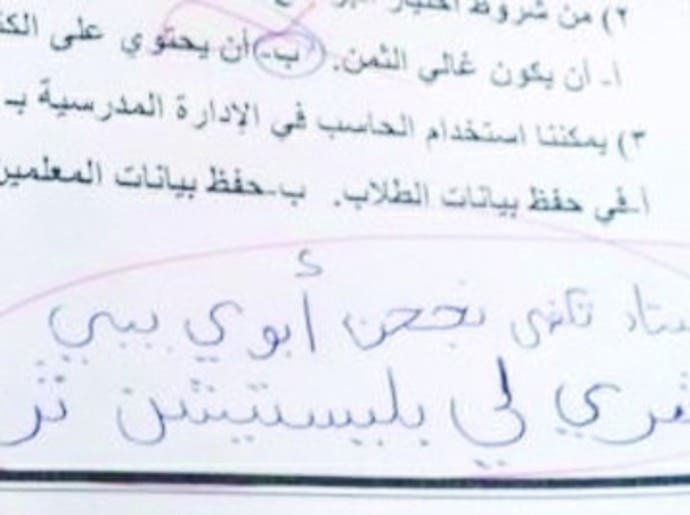 ٢) من شروط اختيار
أ- أن يكون غالي الثمن. ب- أن يحتوي على الكـ
٣) يمكننا استخدام الحاسب في الإدارة المدرسية بـ
أ-في حفظ بيانات الطلاب. ب-حفظ بيانات المعلمين
ستاذ تكفى نجحن أبوي بيبي
لي بليستيشن